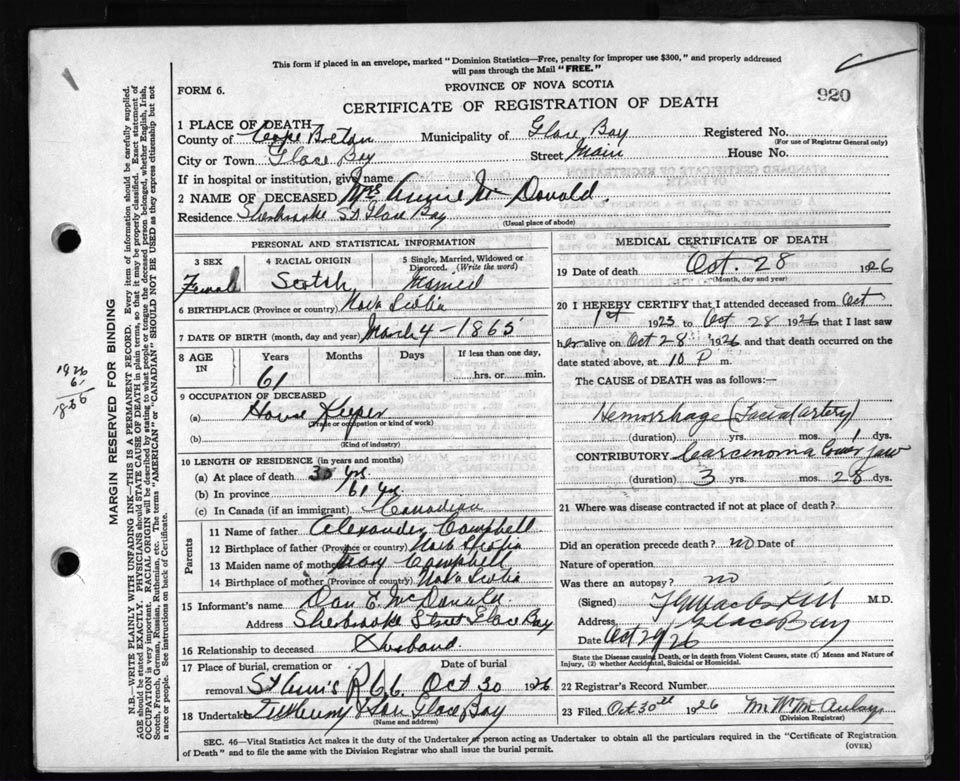 This form if placed in an envelope, marked "Dominion Statistics—Free, penalty for improper use $300," and properly addressed
will pass through the Mail "FREE."
C
920
FORM 6.
PROVINCE OF NOVA SCOTIA
CERTIFICATE OF REGISTRATION OF DEATH
1 PLACE OF DEATH
County of Cape Breton Municipality of Glace Bay Registered No.
(For use of Registrar General only)
City or Town Glace Bay Street Main House No.
If in hospital or institution, give name
2 NAME OF DECEASED Mrs Annie McDonald.
Residence Sherbrooke St Glace Bay
(Usual place of abode)
PERSONAL AND STATISTICAL INFORMATION
3 SEX 4 RACIAL ORIGIN 5 Single, Married, Widowed or Divorced. (Write the word)
Female Scotch Married
6 BIRTHPLACE (Province or country) Nova Scotia
7 DATE OF BIRTH (month, day and year) March 4 - 1865
8 AGE IN Years Months Days If less than one day,
61 hrs. or min.
9 OCCUPATION OF DECEASED
(a) House Keeper
(Trade or occupation or kind of work)
(b)
(Kind of industry)
10 LENGTH OF RESIDENCE (in years and months)
(a) At place of death 30 yrs.
(b) In province 61 yrs
(c) In Canada (if an immigrant) Canadian
Parents
11 Name of father Alexander Campbell
12 Birthplace of father (Province or country) Nova Scotia
13 Maiden name of mother Campbell
14 Birthplace of mother (Province or country) Nova Scotia
15 Informant's name Dan E. McDonald.
Address Sherbrooke Street Glace Bay
16 Relationship to deceased Husband
17 Place of burial, cremation or removal Date of burial
St Ann's Oct 30 1926
18 Undertaker & Son Glace Bay
(Name and address)
MEDICAL CERTIFICATE OF DEATH
19 Date of death Oct. 28 1926
(Month, day and year)
20 I HEREBY CERTIFY that I attended deceased from Oct
1st 1923 to Oct 28 1926 that I last saw
her alive on Oct 28 1926 and that death occurred on the
date stated above, at 10 P m.
The CAUSE of DEATH was as follows:—
Hemorrhage (Facial artery)
(duration) yrs. mos. 1 dys.
CONTRIBUTORY Carcinoma Lower jaw
(duration) 3 yrs. mos. 28 dys.
21 Where was disease contracted if not at place of death?
Did an operation precede death? no Date of
Nature of operation
Was there an autopsy? no
(Signed) M.D.
Address Glace Bay
Date Oct 29/26
State the Disease causing Death, or in death from Violent Causes, state (1) Means and Nature of
Injury, (2) whether Accidental, Suicidal or Homicidal.
22 Registrar's Record Number
23 Filed Oct 30th 1926 M. McAulay
(Division Registrar)
SEC. 46—Vital Statistics Act makes it the duty of the Undertaker or person acting as Undertaker to obtain all the particulars required in the "Certificate of Registration
of Death" and to file the same with the Division Registrar who shall issue the burial permit.
(OVER)
MARGIN RESERVED FOR BINDING
N.B.—WRITE PLAINLY WITH UNFADING INK—THIS IS A PERMANENT RECORD. Every item of information should be carefully supplied.
AGE should be stated EXACTLY. PHYSICIANS should STATE CAUSE OF DEATH in plain terms, so that it may be properly classified. Exact statement of
OCCUPATION is very important. RACIAL ORIGIN will be described by stating to what people or tongue the deceased person belonged, whether English, Irish,
Scotch, French, German, Russian, Ruthenian, etc. The terms "AMERICAN" or "CANADIAN" SHOULD NOT BE USED as they express citizenship but not
a race or people. See instructions on back of Certificate.
1926
61